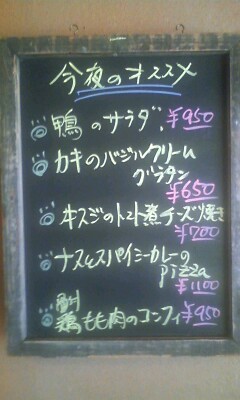 今夜のオススメ
鴨のサラダ ¥950
カキのバジルクリーム
グラタン
¥650
牛スジのトマト煮チーズ焼き
¥700
ナスとスパイシーカレーの
pizza
¥1100
鶏もも肉のコンフィ ¥950